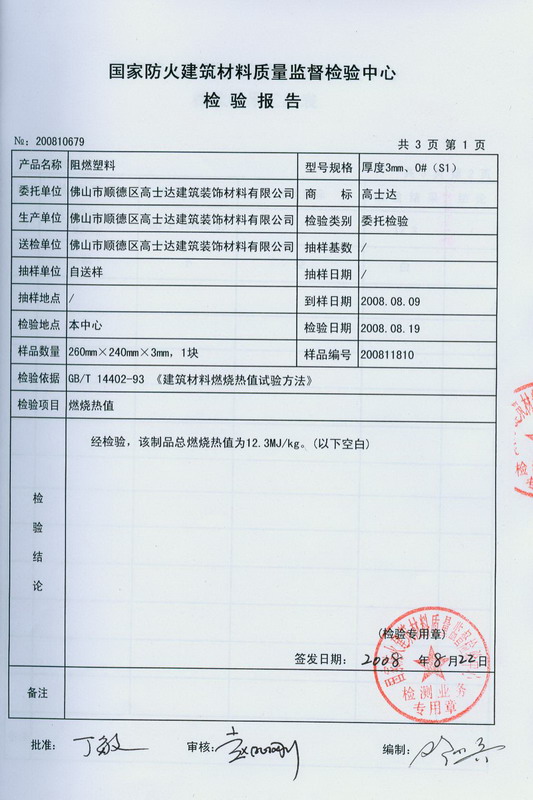 国家防火建筑材料质量监督检验中心
检 验 报 告
№: 200810679 共 3 页 第 1 页
产品名称 阻燃塑料 型号规格 厚度3mm、0#（S1）
委托单位 佛山市顺德区高士达建筑装饰材料有限公司 商 标 高士达
生产单位 佛山市顺德区高士达建筑装饰材料有限公司 检验类别 委托检验
送检单位 佛山市顺德区高士达建筑装饰材料有限公司 抽样基数 /
抽样单位 自送样 抽样日期 /
抽样地点 / 到样日期 2008.08.09
检验地点 本中心 检验日期 2008.08.19
样品数量 260mm×240mm×3mm，1块 样品编号 200811810
检验依据 GB/T 14402-93 《建筑材料燃烧热值试验方法》
检验项目 燃烧热值
检验结论 经检验，该制品总燃烧热值为12.3MJ/kg。(以下空白)
(检验专用章)
签发日期： 2008 年 8 月 22 日
检测业务
专用章
备注
批准： 丁敏 审核： 编制：